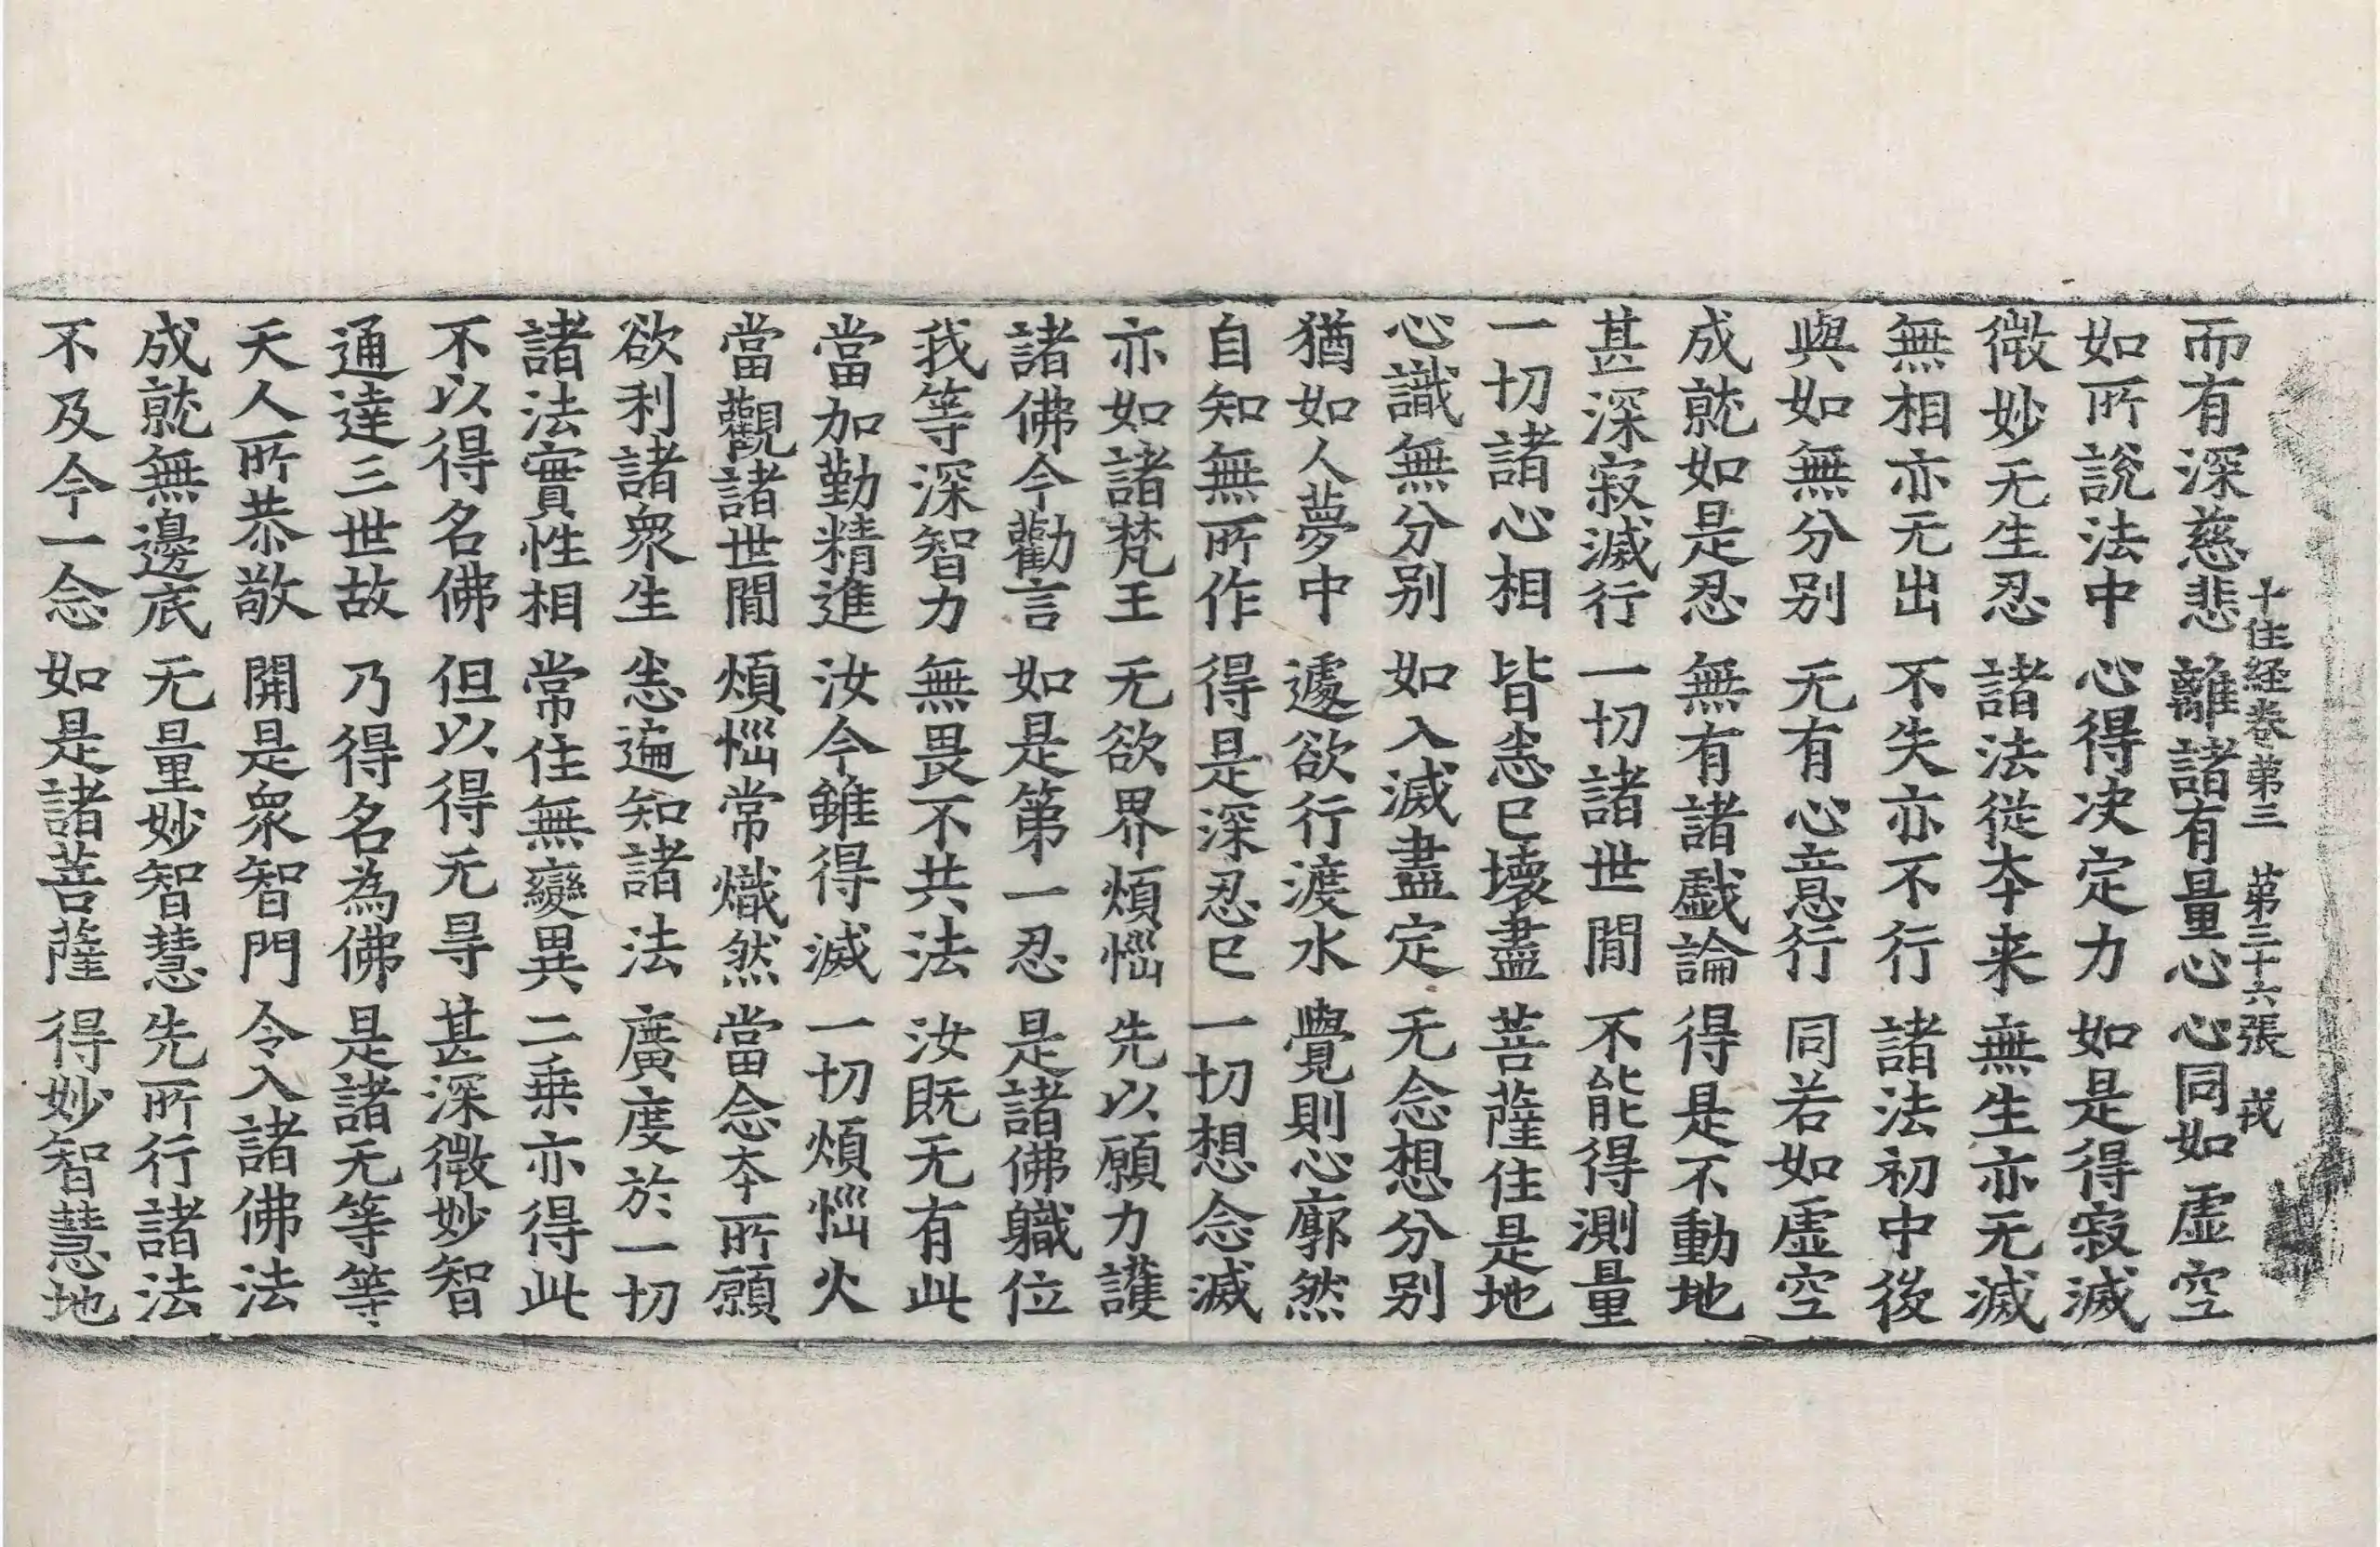 十住経卷第三　第三十六張　戎
而有深慈悲　離諸有量心　心同如虛空
如所說法中　心得決定力　如是得寂滅
微妙无生忍　諸法從本来　無生亦无滅
無相亦无出　不失亦不行　諸法初中後
與如無分別　无有心意行　同若如虛空
成就如是忍　無有諸戲論　得是不動地
甚深寂滅行　一切諸世閒　不能得測量
一切諸心相　皆悉已壞盡　菩薩住是地
心識無分別　如入滅盡定　无念想分別
猶如人夢中　遽欲行渡水　覺則心廓然
自知無所作　得是深忍已　一切想念滅
亦如諸梵王　无欲界煩惱　先以願力護
諸佛今勸言　如是第一忍　是諸佛職位
我等深智力　無畏不共法　汝既无有此
當加勤精進　汝今雖得滅　一切煩惱火
當觀諸世閒　煩惱常熾然　當念本所願
欲利諸衆生　悉遍知諸法　廣度於一切
諸法實性相　常住無變異　二乗亦得此
不以得名佛　但以得无㝵　甚深微妙智
通達三世故　乃得名為佛　是諸无等等
天人所恭敬　開是衆智門　令入諸佛法
成就無邊底　无量妙智慧　先所行諸法
不及今一念　如是諸菩薩　得妙智慧地